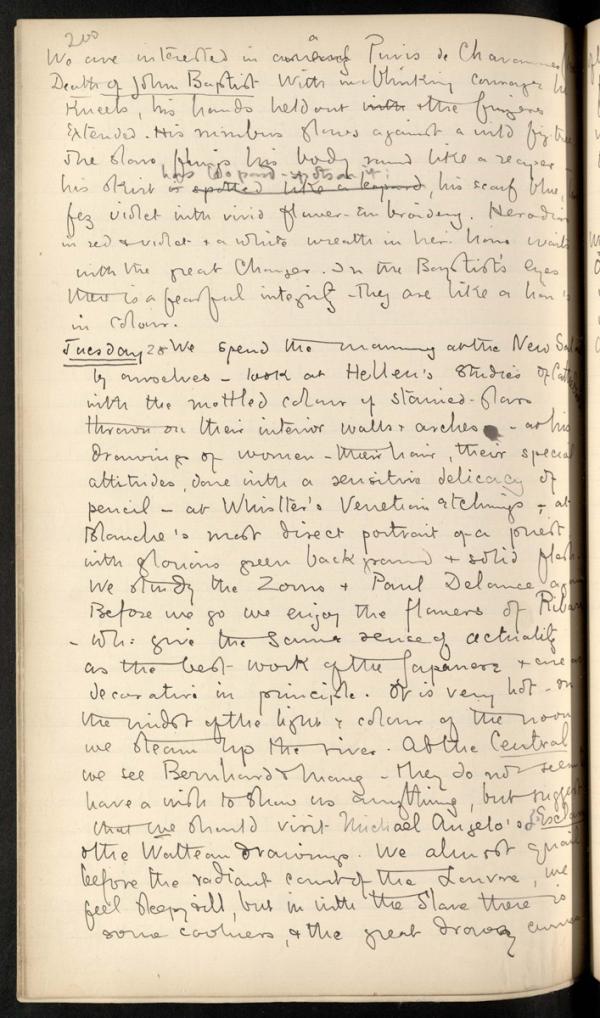 200
We are interested in a Puvis de Chavannes
Death of John Baptist With unblinking courage he
Kneels, his hands held out with the fingers
extended. His nimbus glows against a wild fig-tree
The slave flings his body round like a reaper
has leopard-spots on it;
his skirt is spotted like a leopard, his scarf blue,
fez violet with vivid flower-embroidery. Herodias
in red & violet & a white wreath in her hair waits
with the great Charger. In the Baptist's eyes
there is a fearful integrity - they are like a lion's
in colour.
Tuesday 28 We spend the morning at the New Salon
by ourselves - look at Helleu's Studies of
with the mottled colour of stained-glass
thrown on their interior walls & arches - at his
drawings of women - their hair, their special
attitudes, done with a sensitive delicacy of
pencil - at Whistler's Venetian etchings - at
Blanche's most direct portrait of a priest
with glorious green background & solid flesh.
We study the Zorns & Paul Delance again
Before we go we enjoy the flowers of
- wh: give the same sense of actuality
as the best work of the Japanese & are as
decorative in principle. It is very hot - in
the midst of the light & colour of the noon
we steam up the river. At the Central
we see Bernhard & Mary - they do not seem
have a wish to show us anything, but suggest
that we should visit Michael Angelo's
& the Watteau drawings. We almost quail
before the radiant court of the Louvre, we
feel sleepy still, but in with the Slave there is
some coolness, & the great drowsy